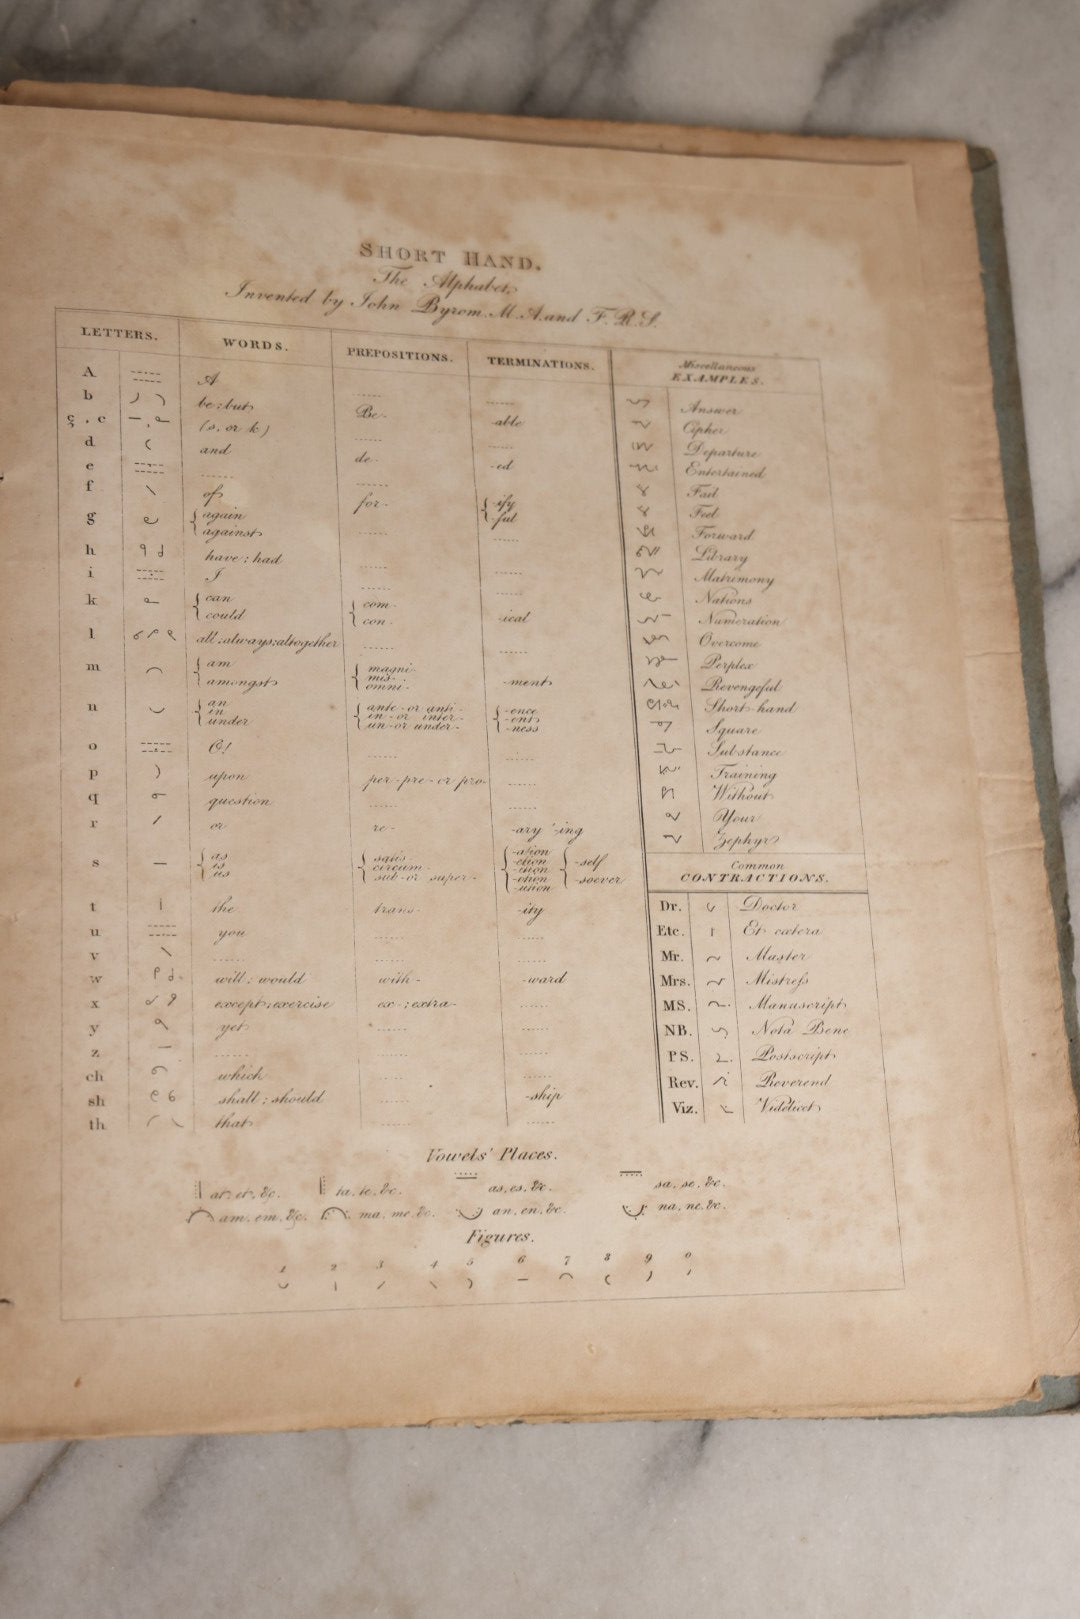 SHORT HAND.
The Alphabet,
Invented by John Byrom M.A. and F.R.S.
LETTERS. WORDS. PREPOSITIONS. TERMINATIONS.
A A
b be : but Be- -able
ç , c (s, or k)
d and de- -ed
e
f of for- { -ify -ful
g { again against
h have : had
i I
k { can could { com- con- -ical
l all : always : altogether
m { am amongst { magni- mis- omni- -ment
n { an in under { ante- or anti- in- or inter- un- or under- { -ence -ent -ness
o O!
p upon per- pre- or pro-
q question
r or re- -ary -ing
s { as is us { satis- circum- sub- or super- { -ation -etion -ition -otion -ution { -self -soever
t the trans- -ity
u you
v
w will : would with- -ward
x except : exercise ex- : extra-
y yet
z
ch which
sh shall : should -ship
th that
Miscellaneous
EXAMPLES.
Answer
Cipher
Departure
Entertained
Fail
Feel
Forward
Library
Matrimony
Nations
Numeration
Overcome
Perplex
Revengeful
Short-hand
Square
Substance
Training
Without
Your
Zephyr
Common
CONTRACTIONS.
Dr. Doctor
Etc. Et cætera
Mr. Master
Mrs. Mistress
MS. Manuscript
NB. Nota Bene
PS. Postscript
Rev. Reverend
Viz. Videlicet
Vowels' Places.
at, et, &c. ta, te, &c. as, es, &c. sa, se, &c.
am, em, &c. ma, me, &c. an, en, &c. na, ne, &c.
Figures.
1 2 3 4 5 6 7 8 9 0